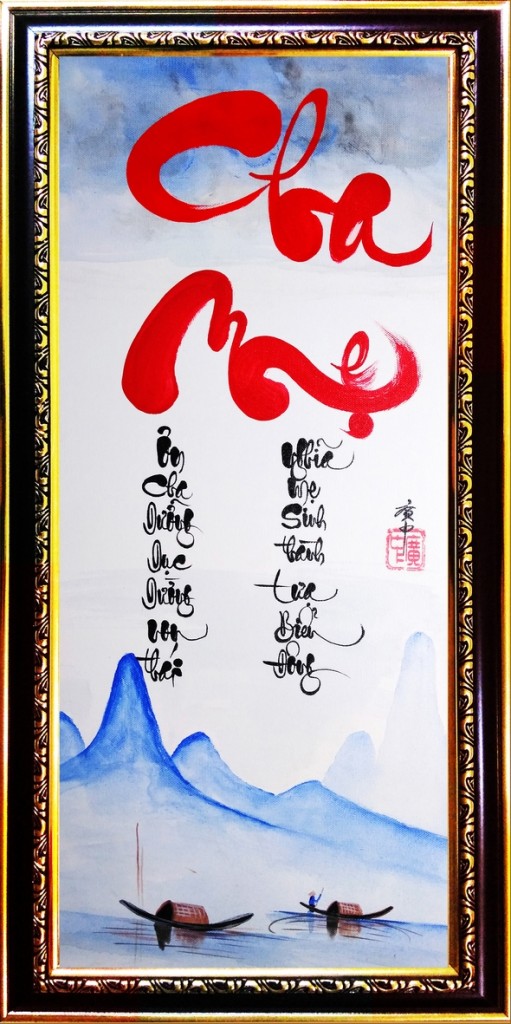 Cha
Mẹ
Ơn Cha Dưỡng Dục Dường non thái
Nghĩa Mẹ Sinh thành tựa Biển Đông